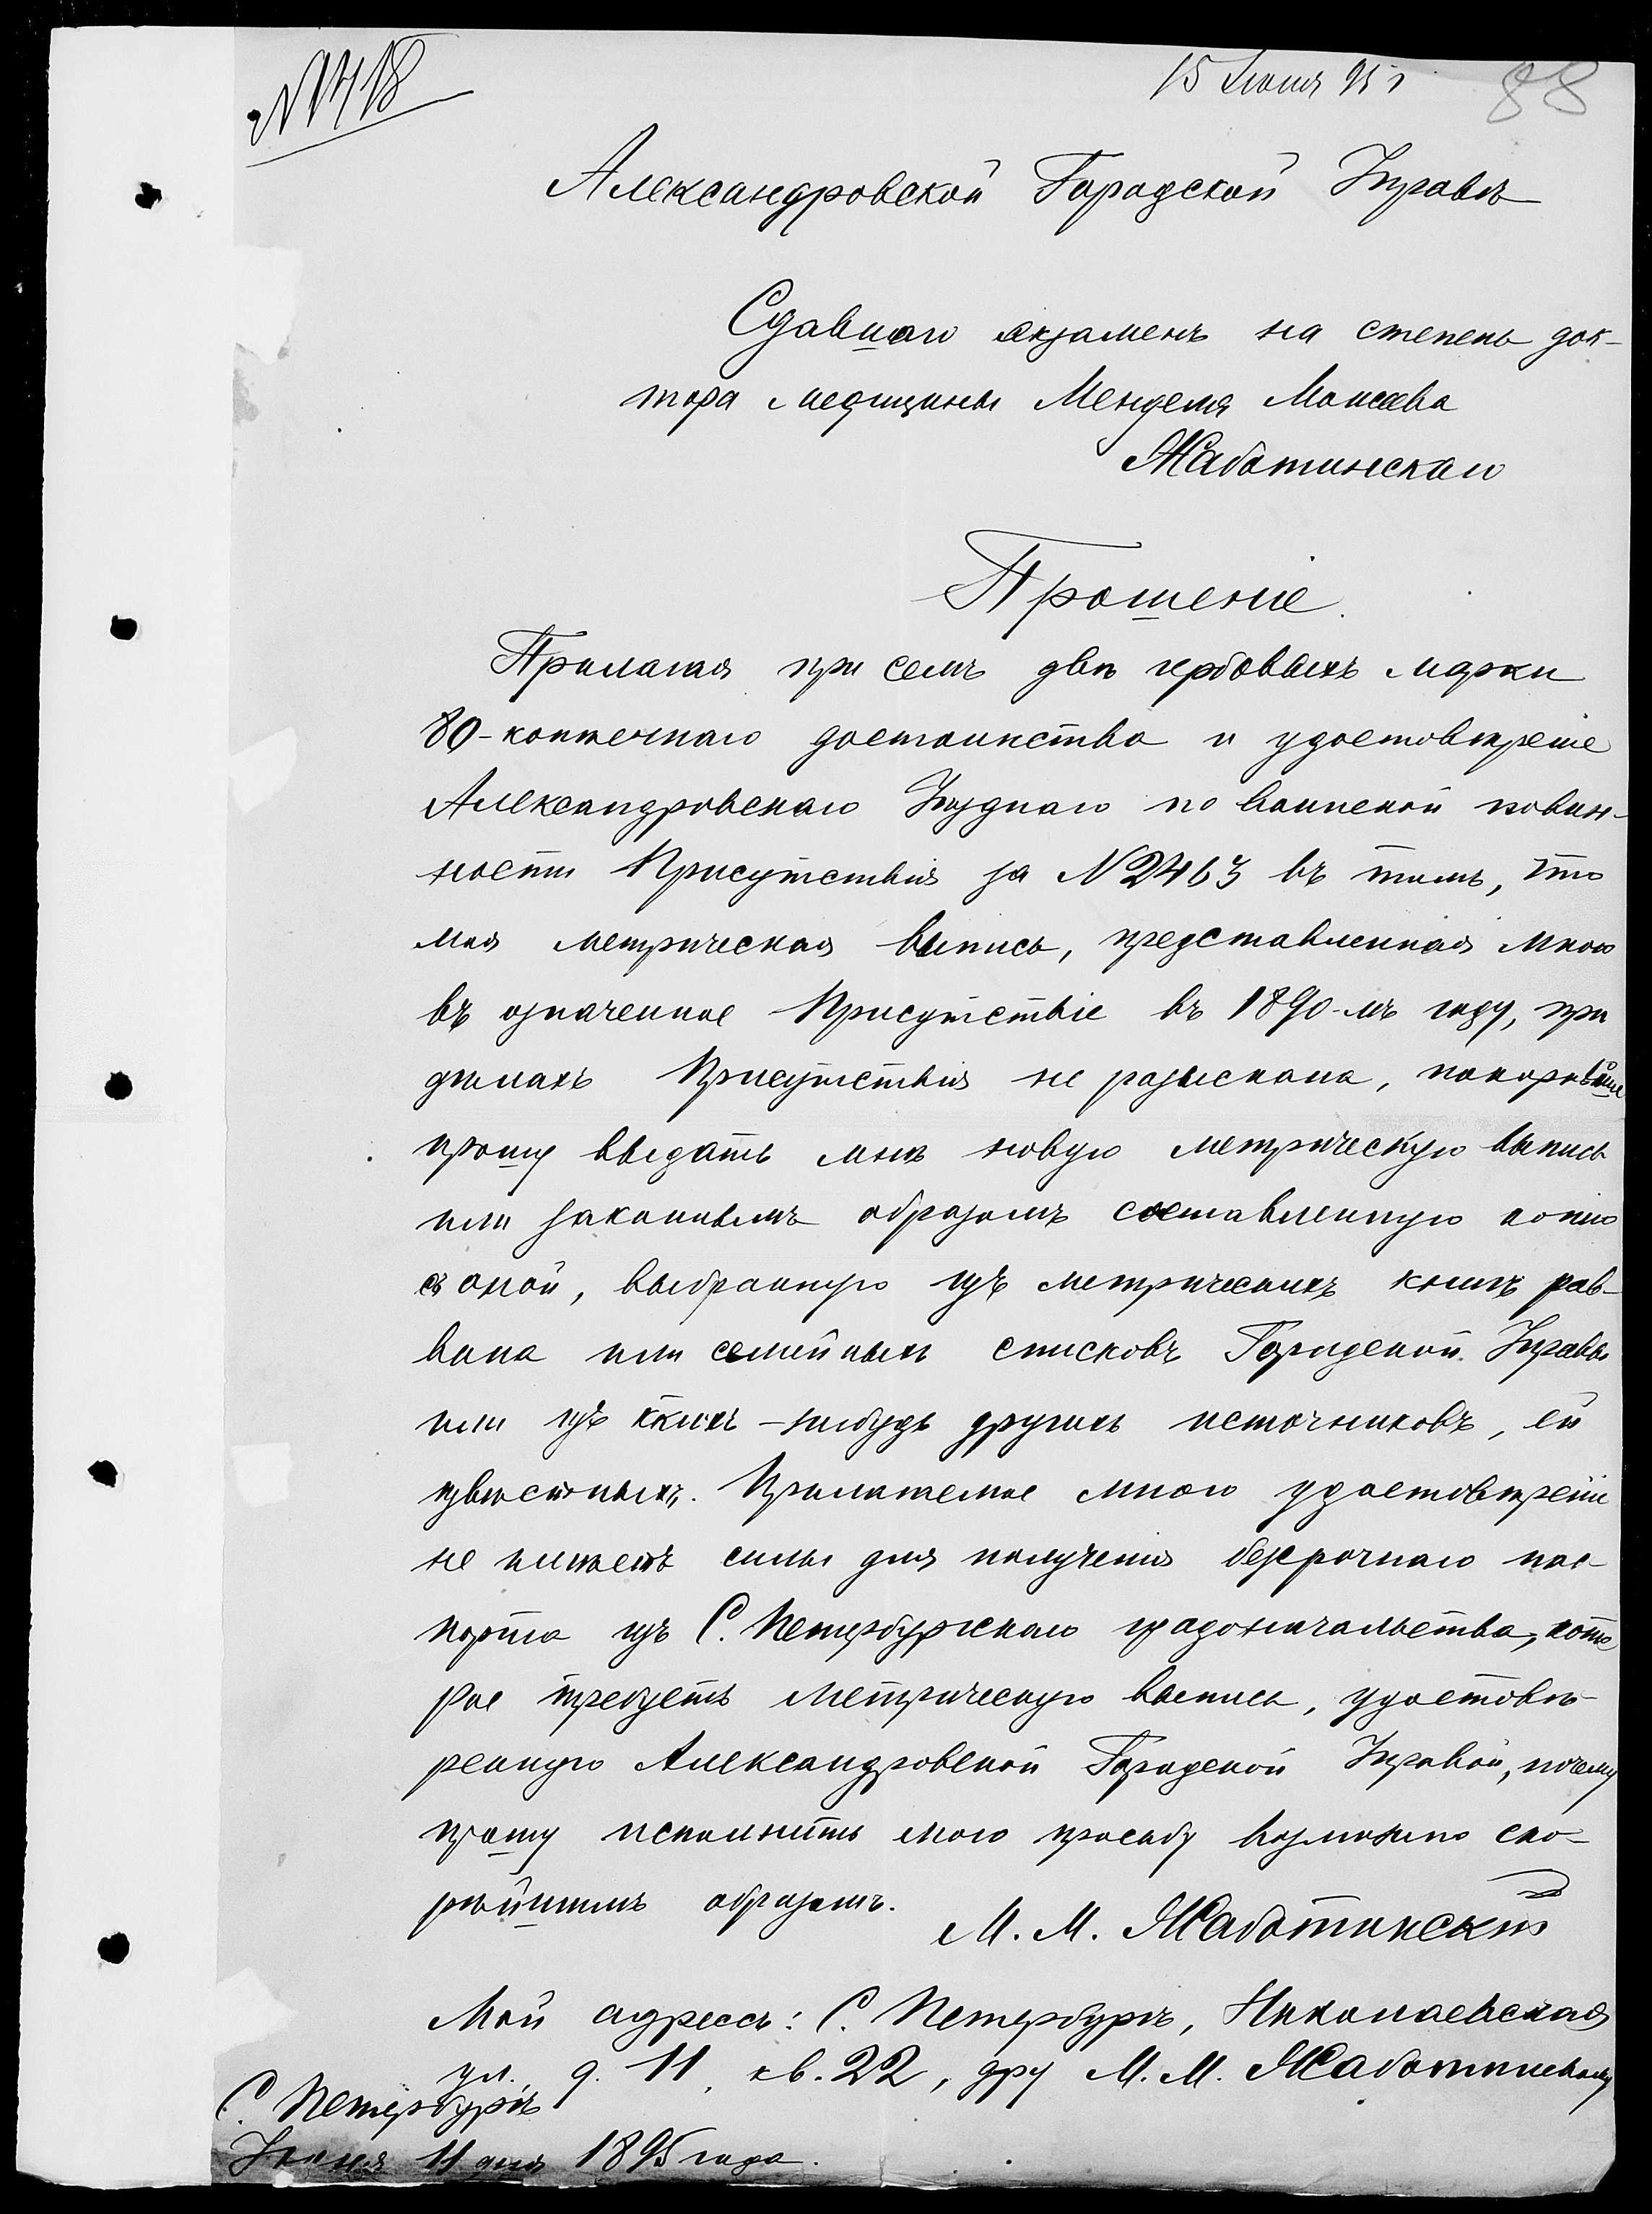 № 1418
15 Июня 95 г
88
Александровской Городской Управѣ
Сдавшаго экзаменъ на степень док-
тора медицины Менделя Моисеева
Жаботинскаго
Прошеніе.
Прилагая при семъ двѣ гербовыхъ марки
80-копѣечнаго достоинства и удостовѣреніе
Александровскаго Уѣзднаго по воинской повин-
ности Присутствія за № 2463 въ томъ, что
моя метрическая выпись, представленная мною
въ означенное Присутствіе въ 1890-мъ году, при
дѣлахъ Присутствія не разыскана, покорнѣйше
прошу выдать мнѣ новую метрическую выпись
или законнымъ образомъ составленную копію
съ оной, выбранную изъ метрическихъ книгъ рав-
вина или семейныхъ списковъ Городской Управы
или изъ какихъ-нибудь другихъ источниковъ, ей
извѣстныхъ. Прилагаемое мною удостовѣреніе
не имѣетъ силы для полученія безсрочнаго пас-
порта изъ С. Петербургскаго градоначальства, кото
рое требуетъ метрическую выпись, удостовѣ-
ренную Александровской Городской Управой, почему
прошу исполнить мою просьбу возможно ско-
рѣйшимъ образомъ.
М. М. Жаботинскій
Мой адрессъ: С. Петербургъ, Николаевская
ул., д. 11, кв. 22, дру М. М. Жаботинскому
С. Петербургъ
Іюня 11 дня 1895 года.